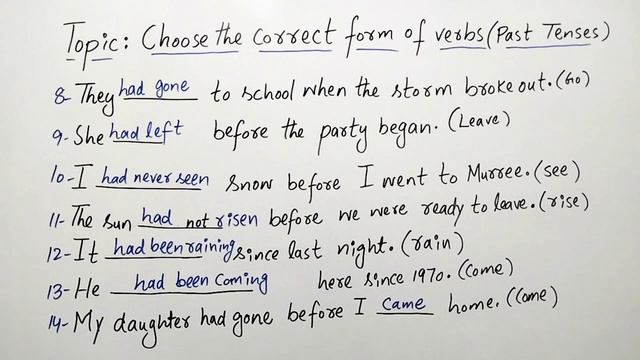 Topic: Choose the correct form of verbs (Past Tenses)
8- They had gone to school when the storm broke out. (Go)
9- She had left before the party began. (Leave)
10- I had never seen snow before I went to Murree. (see)
11- The sun had not risen before we were ready to leave. (rise)
12- It had been raining since last night. (rain)
13- He had been coming here since 1970. (Come)
14- My daughter had gone before I came home. (Come)